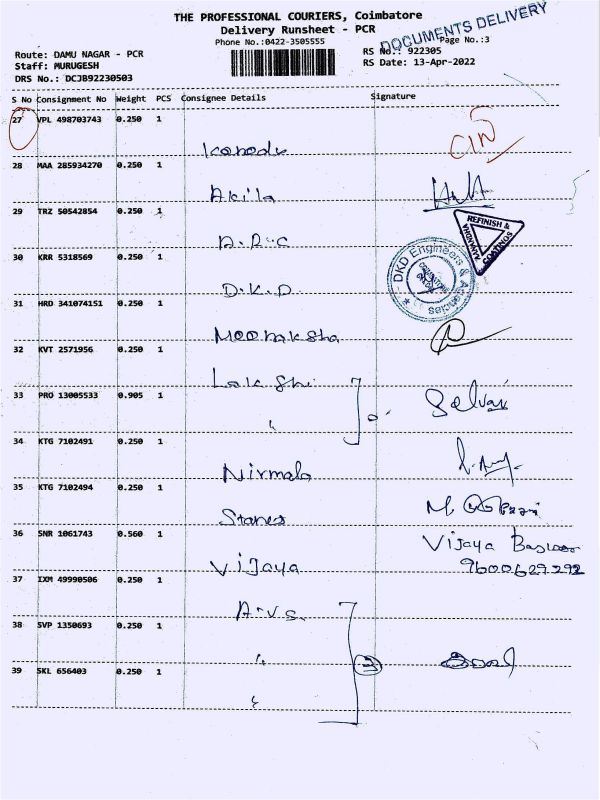 THE PROFESSIONAL COURIERS, Coimbatore
Delivery Runsheet - PCR
Phone No.:0422-3505555
DOCUMENTS DELIVERY
Page No.:3
Route: DAMU NAGAR - PCR
RS No.: 922305
Staff: MURUGESH
RS Date: 13-Apr-2022
DRS No.: DCJB92230503
S No Consignment No Weight PCS Consignee Details Signature
27 VPL 498703743 0.250 1
CIN
28 MAA 285934270 0.250 1
Akila
29 TRZ 50542854 0.250 1
REFINISH &
COATINGS
30 KRR 5318569 0.250 1
DKD Engineers & Agencies
D.K.D
31 HRD 341074151 0.250 1
32 KVT 2571956 0.250 1
33 PRO 13005533 0.905 1
Selvan
34 KTG 7102491 0.250 1
Nirmala
35 KTG 7102494 0.250 1
Stanes
36 SNR 1061743 0.560 1
Vijaya
Vijaya
9600629292
37 IXM 49990506 0.250 1
A.V.S.
38 SVP 1350693 0.250 1
39 SKL 656403 0.250 1